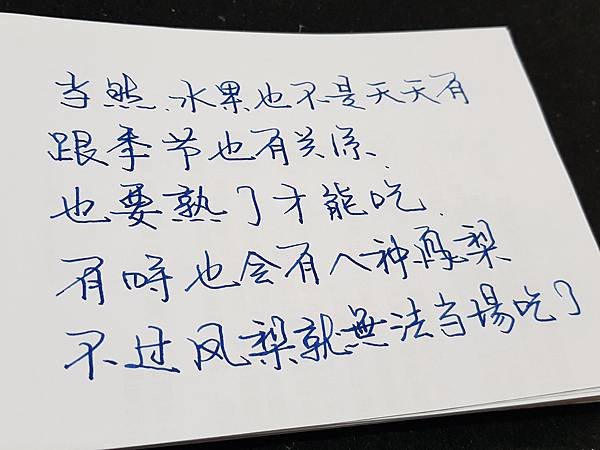 当然,水果也不是天天有
跟季节也有关系、
也要熟了才能吃.
有時也会有人神鳳梨
不过凤梨就無法当場吃了